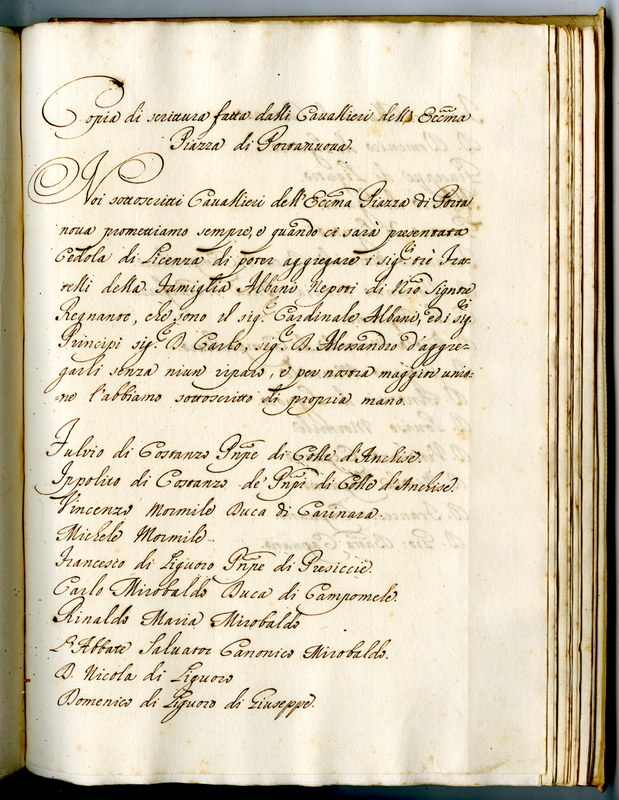 Copia di scrittura fatta dalli Cavallieri dell'Eccma
Piazza di Portanuova.
Noi sottoscritti Cavallieri dell'Eccma Piazza di Porta
nova promettiamo sempre, e quando ci sarà presentata
Cedola di Licenza di poter aggregare i sigri trè Fra-
telli della Famiglia Albani Nepoti di Nro Signore
Regnante, che sono il sigr Cardinale Albani, ed i sigri
Principi sigr D. Carlo, sigr D. Alessandro d'aggre-
garli senza niun riparo, e per nostra maggior unio-
ne l'abbiamo sottoscritto di propria mano.
Fulvio di Costanzo Pnpe di Colle d'Anchise.
Ippolito di Costanzo de Pnpi di Colle d'Anchise.
Vincenzo Mormile Duca di Carinara.
Michele Mormile.
Francesco di Liguoro Pnpe di Presiccie.
Carlo Mirobaldo Duca di Campomele.
Rinaldo Maria Mirobaldo
L'Abbate Salvator Canonico Mirobaldo.
D. Nicola di Liguoro
Domenico di Liguoro di Giuseppe.